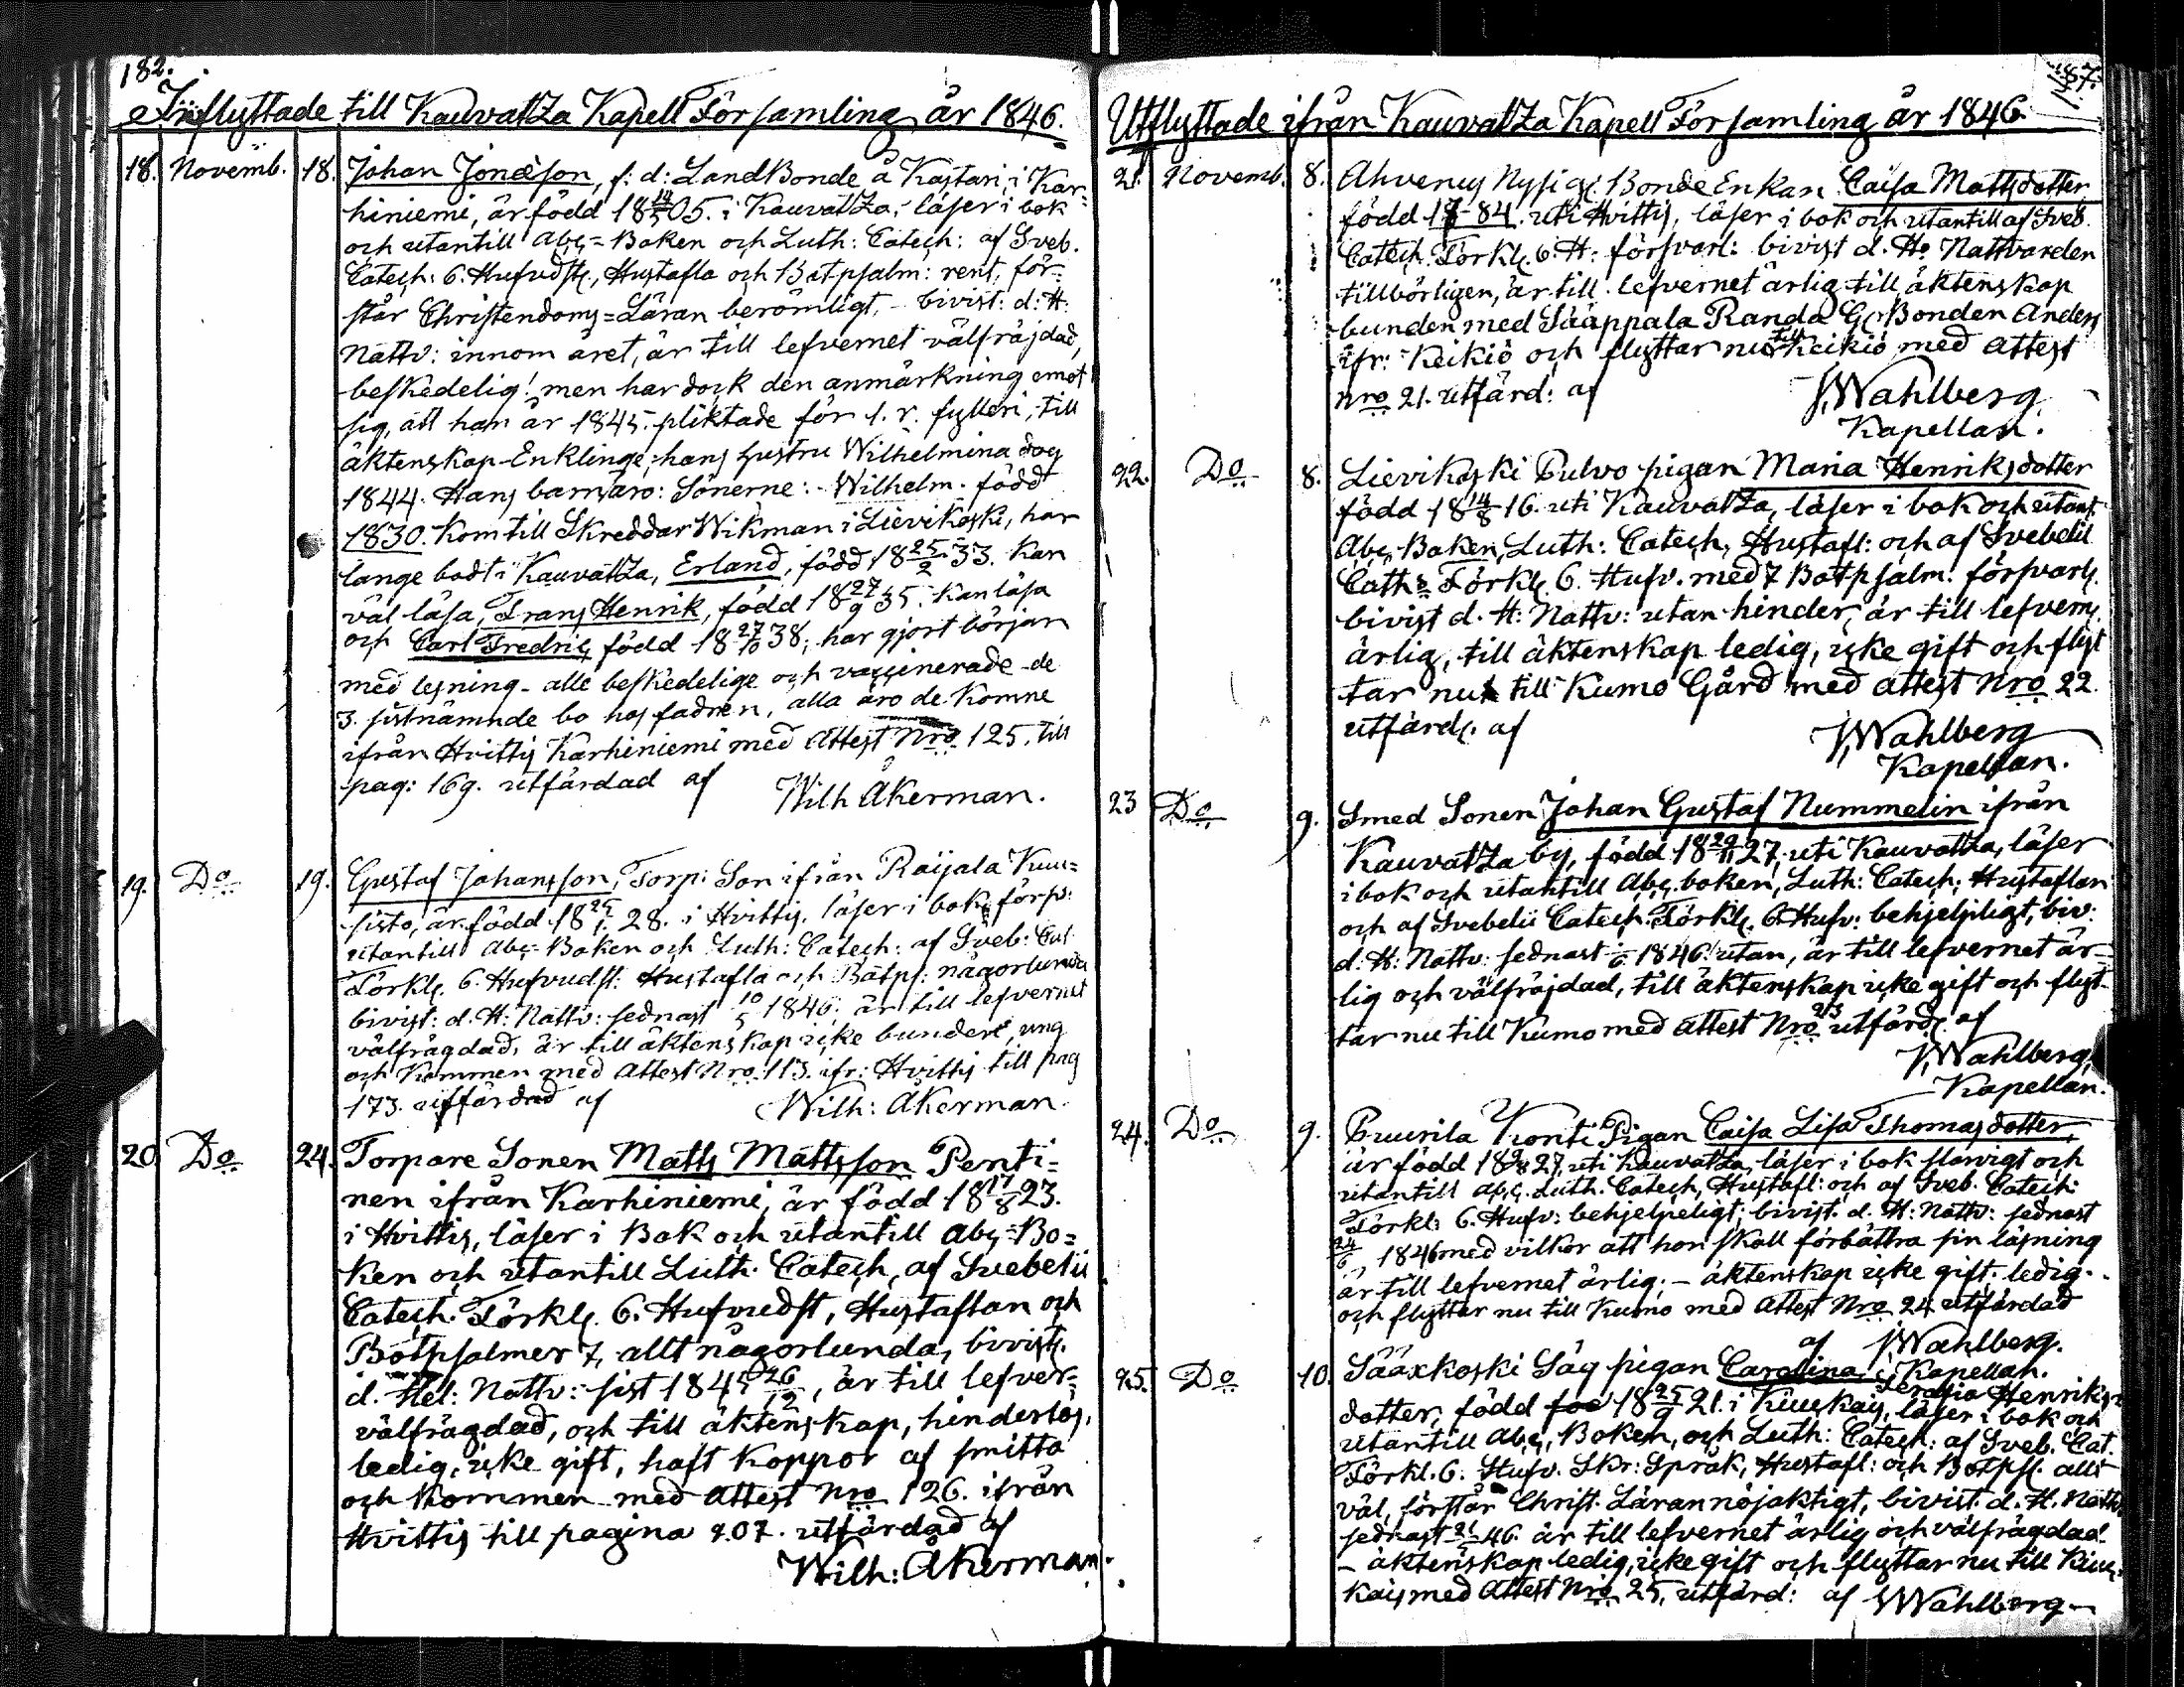 182.
Inflyttade till Kauvatza Kapell Församling år 1846.
18. Novemb. 18. Johan Jonæson, f: d: LandBonde å Kastari i Kar-
hiniemi, är född 18 14/5 05. i Kauvatza, läser i bok
och utantill Abc=Boken och Luth: Catech: af Sveb.
Catech: 6. Hufvdst, Hustafla och Botpsalm: rent, för-
står Christendoms=Läran berömligt, bivist: d: H:
Nattv: innom året, är till lefvernet välfräjdad,
beskedelig! men har dock den anmärkning emot
sig, att han år 1845. pliktade för 1. r. fylleri, till
äktenskap Enklinge, hans hustru Wilhelmina dog
1844. Hans barn äro: Sönerne: Wilhelm. född
1830. kom till Skreddar Wikman i Lievikoski, har
lange bodt i Kauvatza, Erland, född 18 25/2 33. kan
väl läsa, Frans Henrik, född 18 27/9 35. kan läsa
och Carl Fredric född 18 27/10 38, har gjort början
med lesning - alle beskedelige och vaccinerade - de
3. sistnämnde bo hos fadren, alla äro de komne
ifrån Hvittis Karhiniemi med Attest Nro 125. till
pag: 169. utfärdad af Wilh Åkerman.
19. Do 19. Gustaf Johansson, Torp: Son ifrån Raijala Kuu-
sisto, är född 18 25/7 28. i Hvittis. läser i bok försv:
utantill Abc-Boken och Luth: Catech: af Sveb: Cat
Förkl. 6. Hufvudst: Hustafla och Botps: någorlunda
bivist: d: H: Nattv: sednast 10/5 1846; är till lefvernet
välfrägdad, är till äktenskap icke bunden, ung
och kommen med Attest Nro 113. ifr: Hvittis till pag
173. utfärdad af Wilh: Åkerman.
20 Do 24. Torpare Sonen Matts Mattsson Penti-
nen ifrån Karhiniemi, är född 18 17/8 23.
i Hvittis, läser i Bok och utantill Abc=Bo=
ken och utantill Luth. Catech, af Svebelii
Catech. Förkl. 6. Hufvudst, Hustaflan och
Botpsalmer 7, allt någorlunda, bivist.
d. Hel: Nattv: sist 1845 26/12, är till lefver-
välfrägdad, och till äktenskap, hinderlös,
ledig, icke gift, haft koppor af smitto
och kommen med Attest Nro 126. ifrån
Hvittis till pagina 207. utfärdad af
Wilh: Åkerman
187.
Utflyttade ifrån Kauvatza Kapell Församling år 1846.
21. Novemb. 8. Ahvenus Nysi gs: Bonde Enkan Caisa Mattsdotter
född 17-84. uti Hvittis, läser i bok och utantill af Sveb.
Catech. Förkl. 6. H: försvarl: bivist d. H. Nattvarden
tillbörligen, är till lefvernet ärlig, till äktenskap
bunden med Sääppala Randa Gs Bonden Anders
ifr: Keikiö och flyttar nu till Keikiö med attest
Nro 21. utfärd: af J. Wahlberg,
Kapellan.
22. Do 8. Lievikoski Pulvo pigan Maria Henriksdotter
född 18 14/8 16. uti Kauvatza, läser i bok och utant
Abc-Boken, Luth: Catech, Hustafl: och af Svebelii
Cath: Förkl. 6. Hufv. med 7 Botpsalm. försvarl.
bivist d. H: Nattv: utan hinder, är till lefvern.
ärlig, till äktenskap ledig, icke gift och flyt
tar nu till Kumo Gård med attest Nro 22.
utfärd. af J. Wahlberg
Kapellan.
23 Do 9. Smed Sonen Johan Gustaf Nummelin ifrån
Kauvatza by, född 18 29/11 27, uti Kauvatza, läser
i bok och utantill Abc boken, Luth: Catech; Hustaflan
och af Svebelii Catech. Förkl. 6. Hufv: behjelpligt, biv:
d: H: Nattv: sednast 1846. utan, är till lefvernet är-
lig och välfräjdad, till äktenskap icke gift och flyt-
tar nu till Kumo med attest Nro 23 utfärd. af
J. Wahlberg,
Kapellan.
24. Do 9. Puurila Konti Pigan Caisa Lisa Thomasdotter,
är född 18 27, uti Kauvatza, läser i bok slarvigt och
utantill Abc. Luth. Catech, Hustafl: och af Sveb. Catech:
Förkl: 6. Hufv: behjelpeligt; bivist. d. H: Nattv: sednast
24/6, 1846 med vilkor att hon skall förbättra sin läsning
är till lefvernet ärlig; - äktenskap icke gift. ledig.
och flyttar nu till Kumo med Attest Nro 24 utfärdad
af J. Wahlberg.
Kapellan.
25. Do 10. Sääxkoski Säg pigan Carolina Serafia Henriks-
dotter, född 18 25/9 21. i Kiuskais, läser i bok och
utantill Abc, Boken, och Luth: Catech: af Sveb. Cat.
Förkl. 6. Hufv. Skr: Språk, Hustafl: och Botpsl. allt
väl, förstår Christ. Läran nöjaktigt, bivist. d. H. Nattv.
sednast 46. är till lefvernet ärlig och välfrägdad
- äktenskap ledig, icke gift och flyttar nu till Kiu-
kais med Attest Nro 25, utfärd: af J Wahlberg